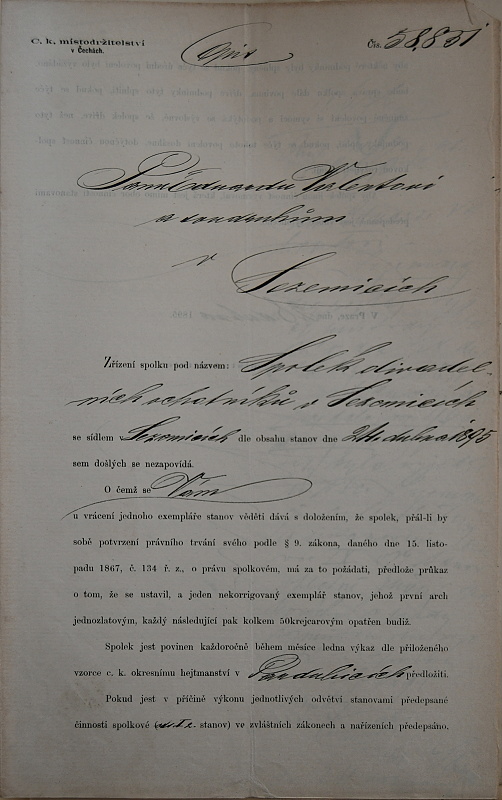 C. k. místodržitelství
v Čechách.
Čís. 58.851
Opis
Panu Eduardu Valentovi
a soudruhům
v
Sezemicích
Zřízení spolku pod názvem: Spolek divadel-
ních ochotníků v Sezemicích
se sídlem Sezemicích dle obsahu stanov dne 24. dubna 1895
sem došlých se nezapovídá.
O čemž se Vám
u vrácení jednoho exempláře stanov věděti dává s doložením, že spolek, přál-li by
sobě potvrzení právního trvání svého podle § 9. zákona, daného dne 15. listo-
padu 1867, č. 134 ř. z., o právu spolkovém, má za to požádati, předlože průkaz
o tom, že se ustavil, a jeden nekorrigovaný exemplář stanov, jehož první arch
jednozlatovým, každý následující pak kolkem 50krejcarovým opatřen budiž.
Spolek jest povinen každoročně během měsíce ledna výkaz dle přiloženého
vzorce c. k. okresnímu hejtmanství v Pardubicích předložiti.
Pokud jest v příčině výkonu jednotlivých odvětví stanovami předepsané
činnosti spolkové ( stanov) ve zvláštních zákonech a nařízeních předepsáno,